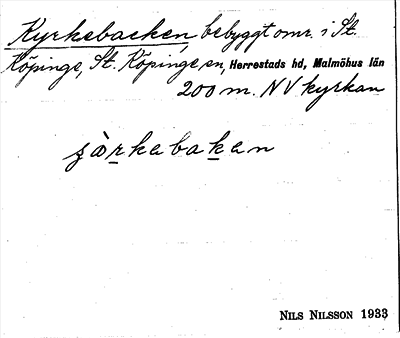 Kyrkebacken, bebyggt omr. i St.
Köpinge, St. Köpinge sn, Herrestads hd, Malmöhus län
200 m. NV kyrkan
Nils Nilsson 1933